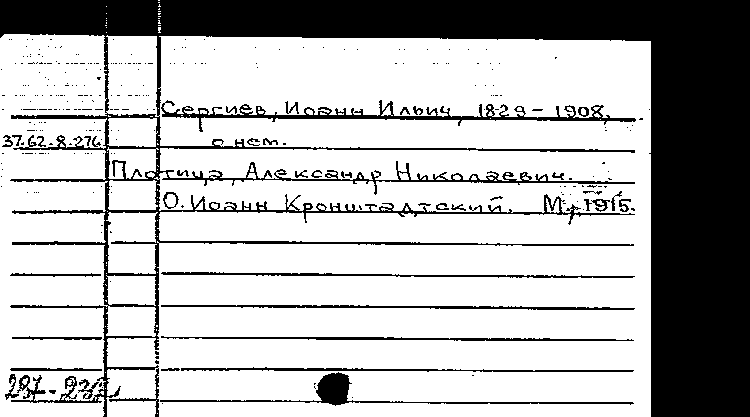 Сергиев, Иоанн Ильич, 1829-1908,
37.62.8.276 о нем.
Плотица, Александр Николаевич.
О. Иоанн Кронштадтский. М., 1915.